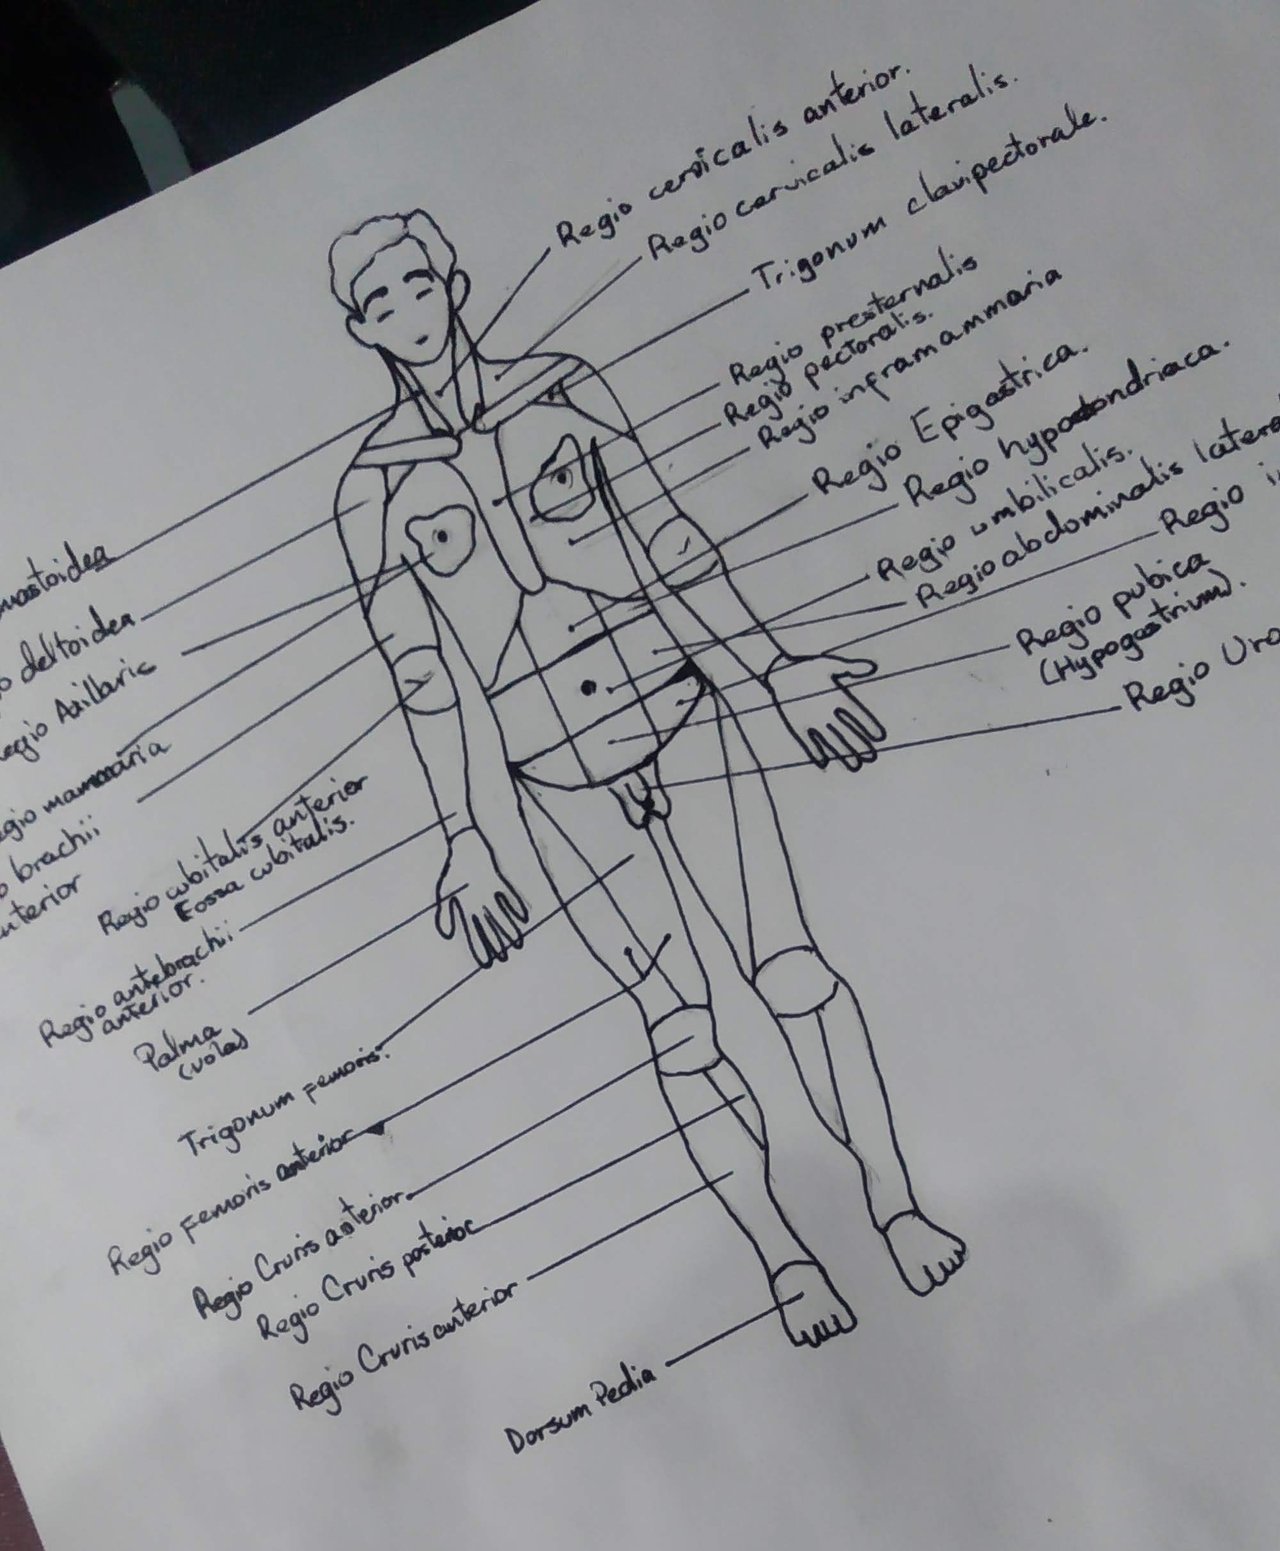 Regio cervicalis anterior.
Regio cervicalis lateralis.
Trigonum clavipectorale.
Regio presternalis
Regio pectoralis.
Regio inframammaria
Regio Epigastrica.
Regio
Regio umbilicalis.
Regio abdominalis latera
Regio i
Regio pubica
(Hypogastrium).
Regio Uro
mastoidea
o deltoidea
egio Axillaris
egio mammaria
o brachii
nterior
Regio cubitalis anterior
Fossa cubitalis.
Regio antebrachii
anterior.
Palma
(vola)
Trigonum Femoris.
Regio Femoris anterior
Regio Cruris anterior
Regio Cruris posterior
Regio Cruris anterior
Dorsum Pedia